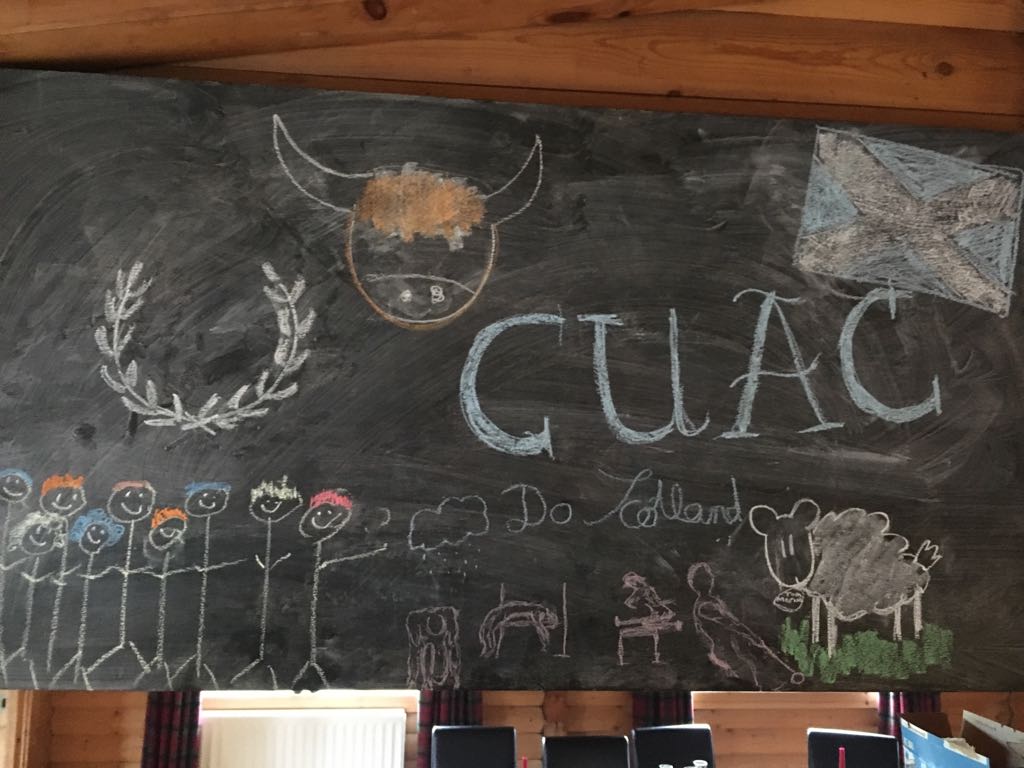 CUAC
Do Scotland